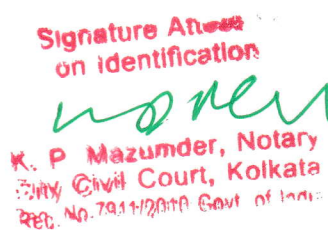 Signature Attested
on identification
K. P Mazumder, Notary
City Civil Court, Kolkata
Reg. No. 7911/2010 Govt of India